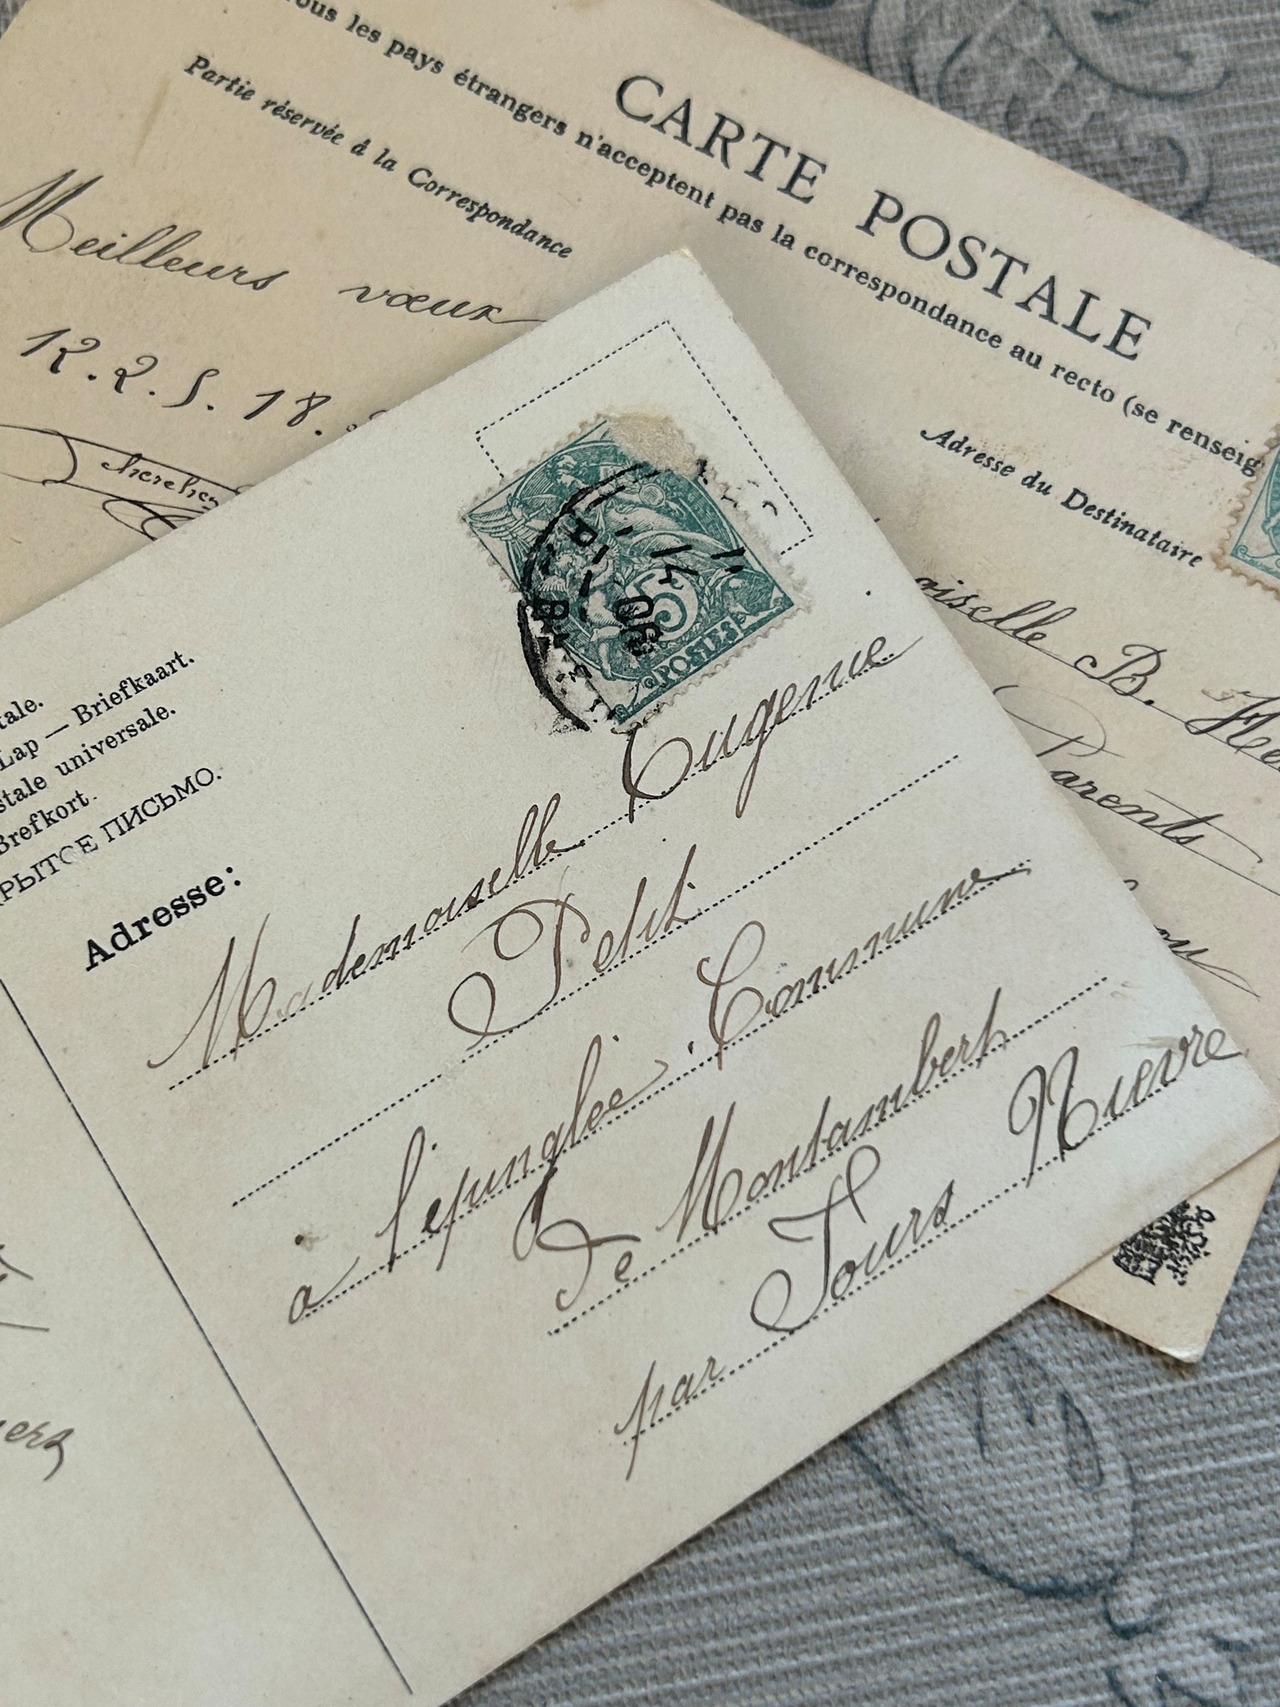 CARTE POSTALE
ous les pays étrangers n'acceptent pas la correspondance au recto (se renseig
Partie réservée à la Correspondance
Adresse du Destinataire
Meilleurs vœux
12.2.5.18.
oiselle B. He
Parents
5
POSTES
tale.
Lap — Briefkaart.
stale universale.
Brefkort.
РЫТОЕ ПИСЬМО.
Adresse:
Mademoiselle Eugenie
Petit
a l'épinglée. Commune
De Montambert
par Tours Nievre